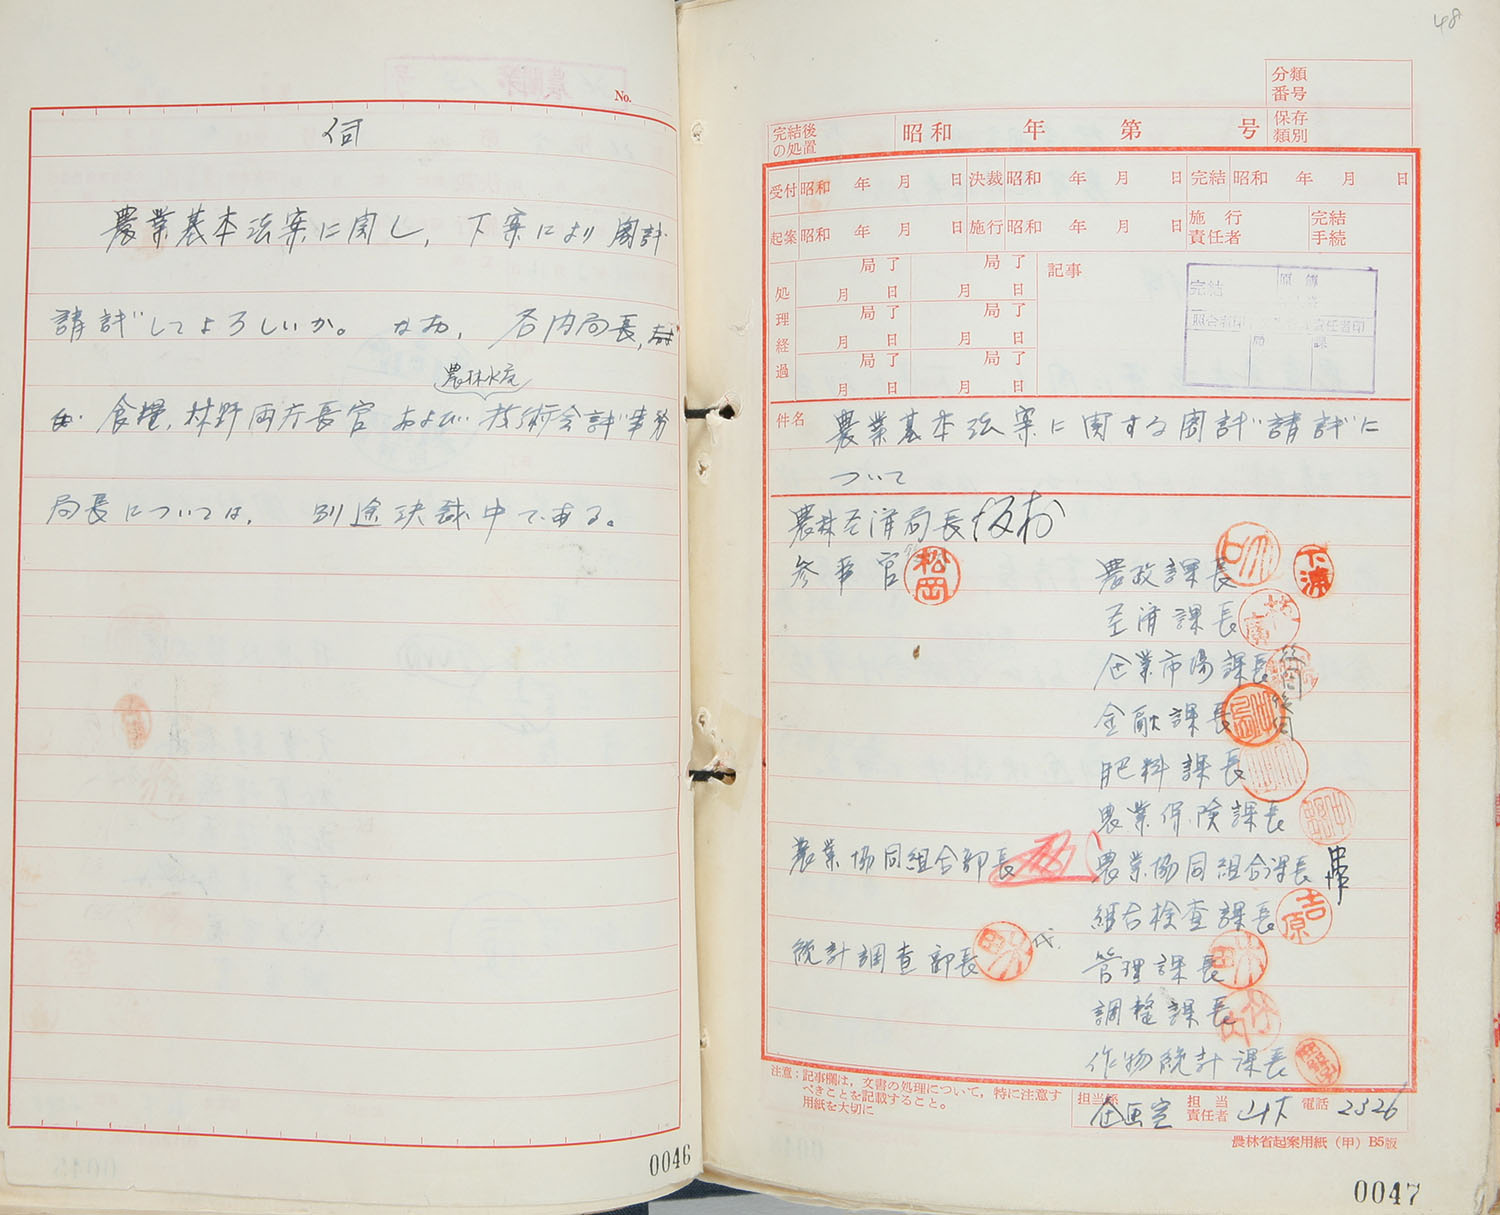 No.
伺
農業基本法案に関し、下案により閣議
請議してよろしいか。なお、各内局長、
食糧、林野両庁長官および農林水産技術会議事務
局長については、別途決裁中である。
0046
48
分類
番号
完結後
の処置
昭和 年 第 号
保存
類別
受付 昭和 年 月 日 決裁 昭和 年 月 日 完結 昭和 年 月 日
起案 昭和 年 月 日 施行 昭和 年 月 日 施行責任者 完結手続
処理経過
局了 局了
月 日 月 日
局了 局了
月 日 月 日
局了 局了
月 日 月 日
記事
完結
原簿
照合者印 責任者印
局 課
件名 農業基本法案に関する閣議請議に
ついて
農林経済局長 坂村
参事官 松岡
農政課長 下浦
経済課長
企業市場課長 後閲
金融課長 後閲
肥料課長
農業保険課長
農業協同組合部長 農業協同組合課長
組合検査課長 吉原
統計調査部長 代 管理課長
調整課長
作物統計課長
注意:記事欄は、文書の処理について、特に注意す
べきことを記載すること。
用紙を大切に
担当係 企画室 担当責任者 山下 電話 2326
農林省起案用紙(甲)B5版
0047